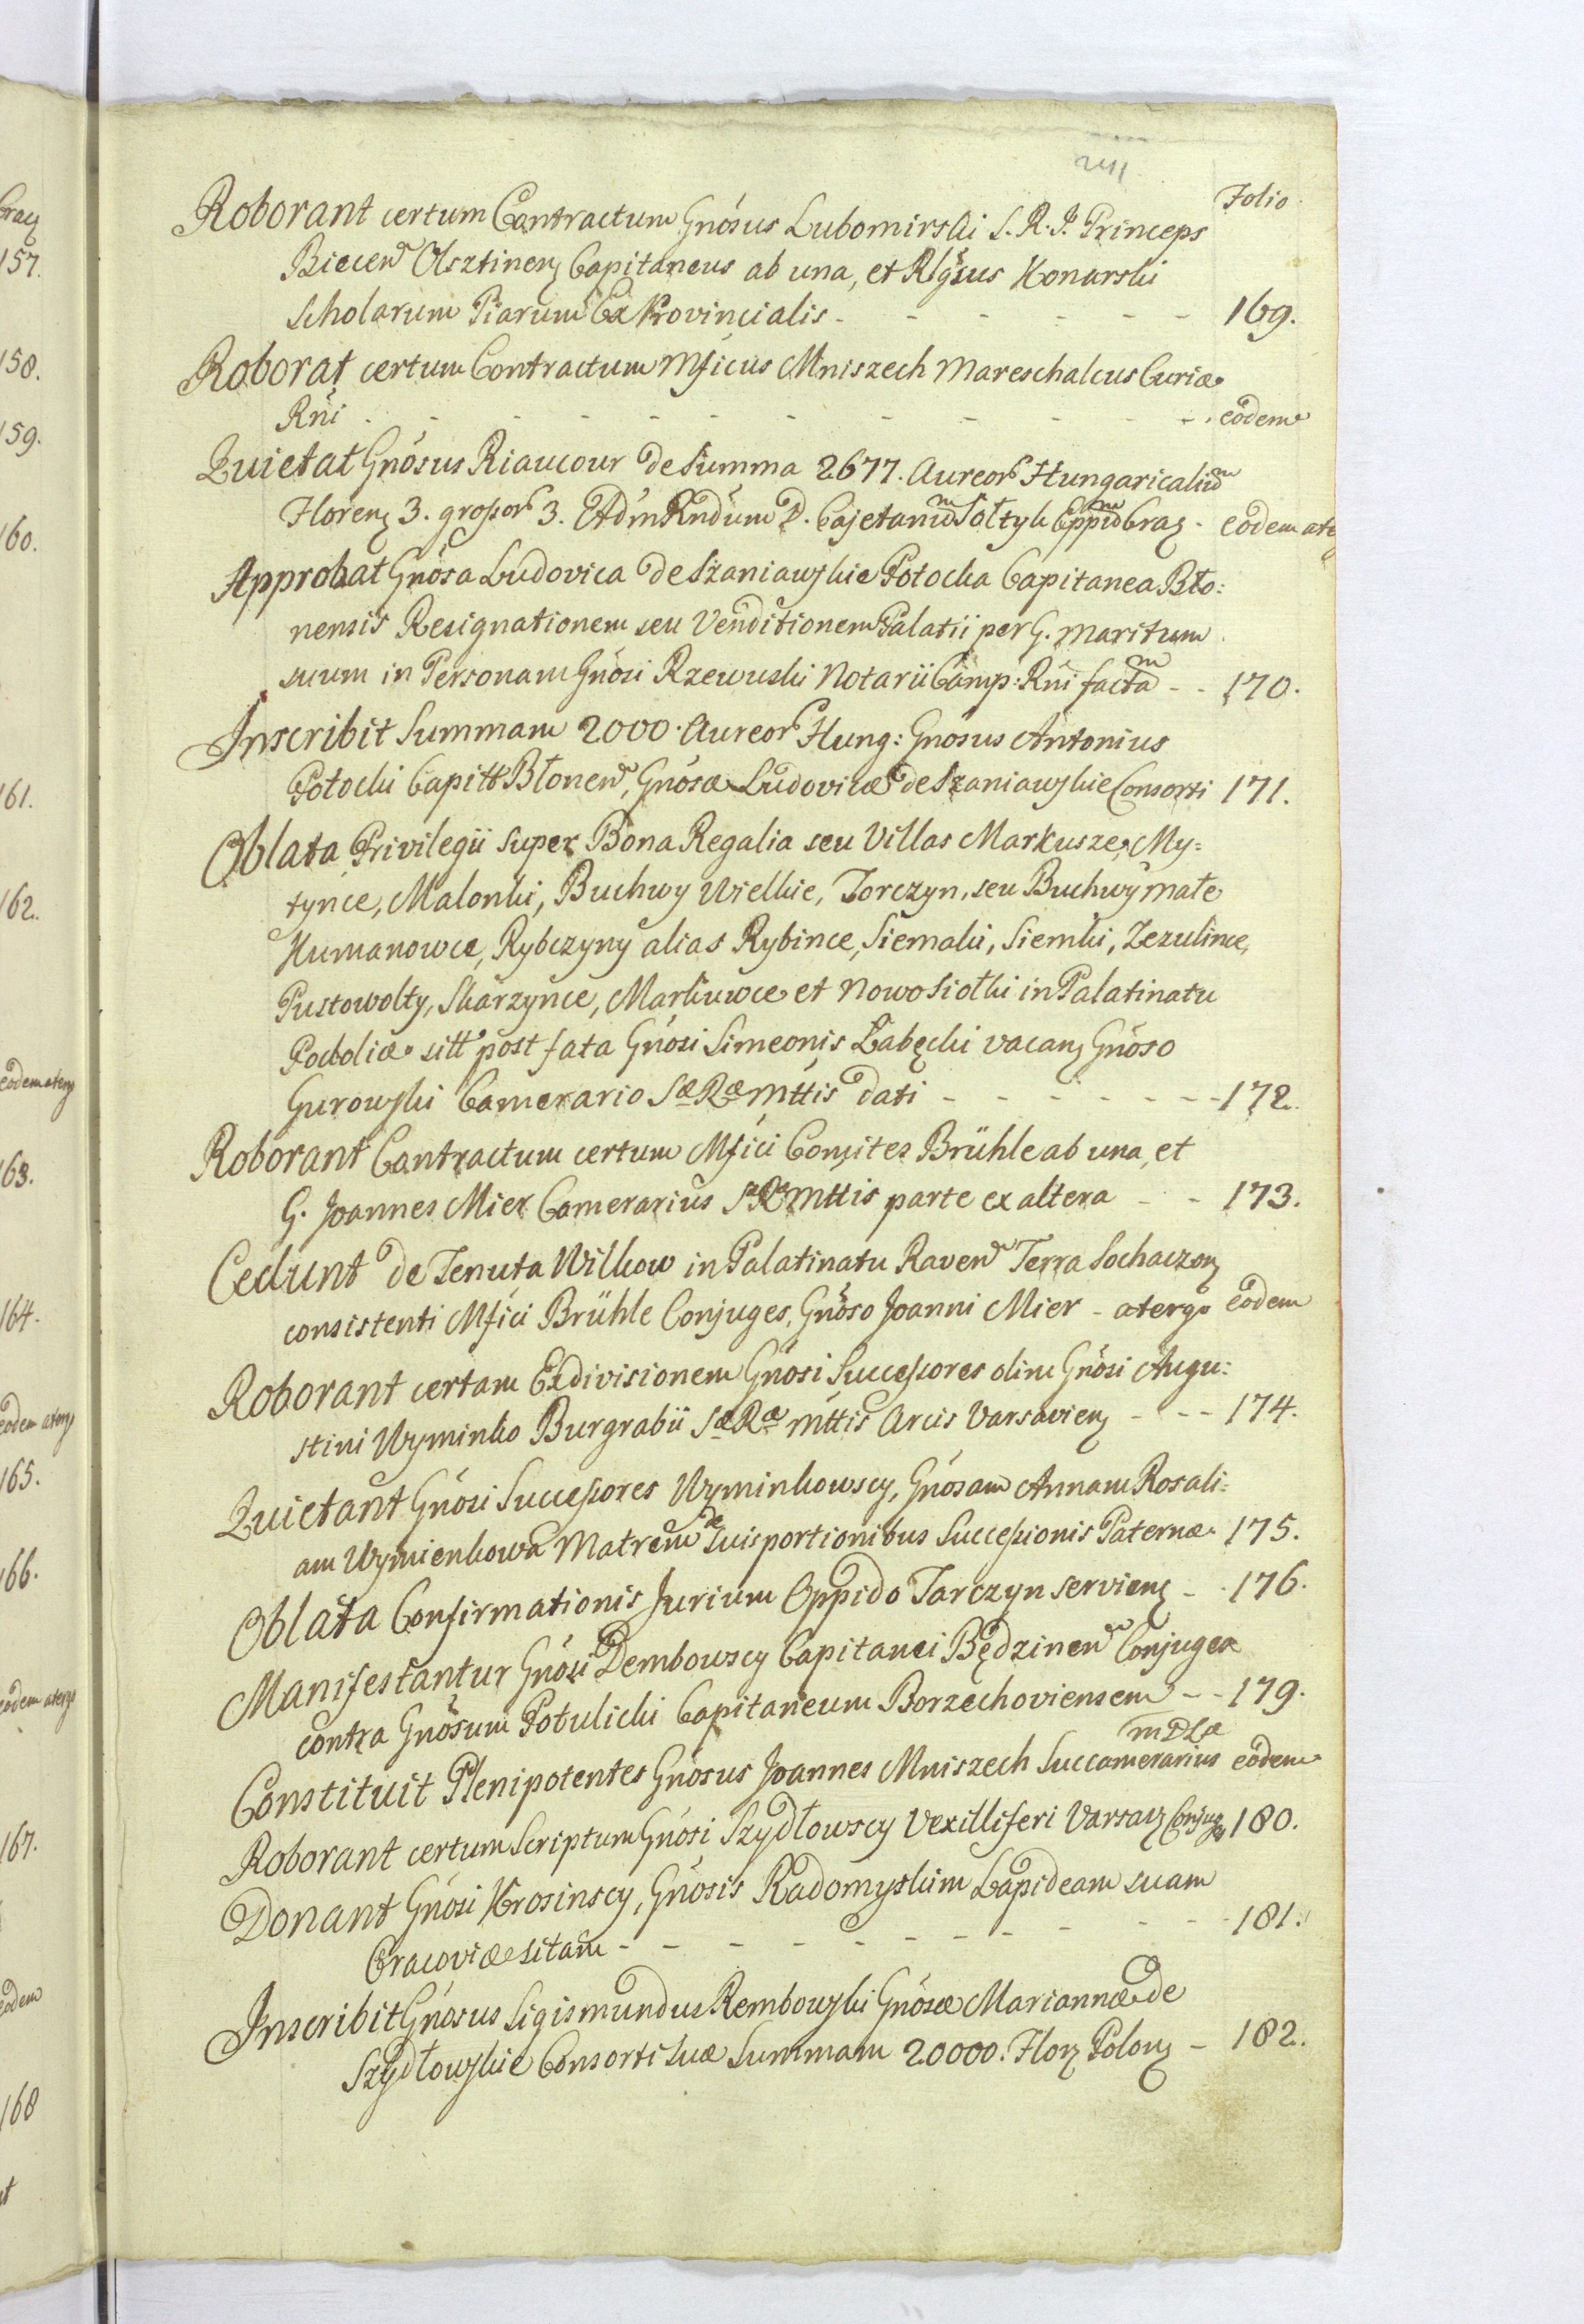 241
Folio
Roborant certum Contractum Gnosus Lubomirski S. R. I. Princeps
Biecen Olsztinen Capitaneus ab una, et Rlgsus Konarski
Scholarum Piarum Ex Provincialis - - - - - - 169.
Roborat certum Contractum Mficus Mniszech Mareschalcus Curiæ
Rni - - - - - - - - - - eodem
Quietat Gnosus Riaucour de Summa 2677. Aureor Hungaricalium
Floren 3. grossor 3. Adm Rndum D. Cajetanum Sołtyk Eppum Crac - eodem aterg
Approbat Gnosa Ludovica de Szaniawskie Potocka Capitanea Bło:
nensis Resignationem seu Venditionem Palatii per G. Maritum
suum in Personam Gnosi Rzewuski Notarii Camp: Rni factam - - 170.
Inscribit Summam 2000. Aureor Hung: Gnosus Antonius
Potocki Capitt Błonen, Gnosæ Ludovicæ de Szaniawskie Consorti 171.
Oblata Privilegii super Bona Regalia seu Villas Markusze, My=
tynce, Malonki, Buchwy Wielkie, Torczyn, seu Buchwy małe
Humanowce, Rybczyny alias Rybince, Siemaki, Siemki, Zezulince,
Pustowołty, Skarzynce, Markuwce et Nowosiołki in Palatinatu
Podoliæ sitt post fata Gnosi Simeonis Łabęcki vacan Gnoso
Gurowski Camerario Sæ Ræ Mttis dati - - - - - - - 172.
Roborant Contractum certum Mfici Comites Brühle ab una, et
G. Joannes Mier Camerarius S R Mttis parte ex altera - - 173.
Cedunt de Tenuta Wilkow in Palatinatu Raven Terra Sochaczon
consistenti Mfici Brühle Conjuges, Gnoso Joanni Mier - atergo eodem
Roborant certam Exdivisionem Gnosi Successores olim Gnosi Augu:
stini Wyminko Burgrabii Sæ Ræ Mttis Arcis Varsavien - - - 174.
Quietant Gnosi Successores Wyminkowscy, Gnosam Annam Rosali=
am Wymienkowa Matrem de suis portionibus Successionis Paternæ 175.
Oblata Confirmationis Jurium Oppido Tarczyn servien - - 176.
Manifestantur Gnosi Dembowscy Capitanei Będzinen Conjuges
contra Gnosum Potulicki Capitaneum Borzechoviensem - - 179.
Constituit Plenipotentes Gnosus Joannes Mniszech Succamerarius MDLæ eodem
Roborant certum Scriptum Gnosi Szydłowscy Vexilliferi Varsav Conjug 180.
Donant Gnosi Krosinscy, Gnosis Radomyskim Lapideam suam
Cracoviæ sitam - - - - - - - - - - 181.
Inscribit Gnosus Sigismundus Rembowski Gnosæ Mariannæ de
Szydłowskie Consorti suæ Summam 20000. Flor Polon - 182.